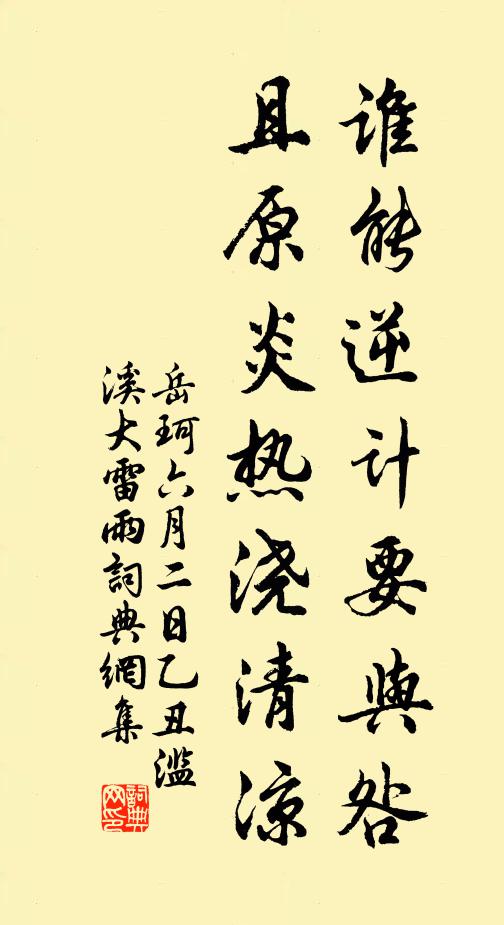 谁能逆计要與咎
且原炎热浇清涼
岳珂六月二日乙丑滥
溪大雷雨詞典網集
詞典
网印